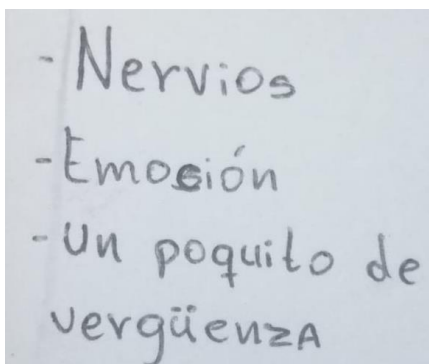 - Nervios
- Emoción
- Un poquito de
vergüenzA